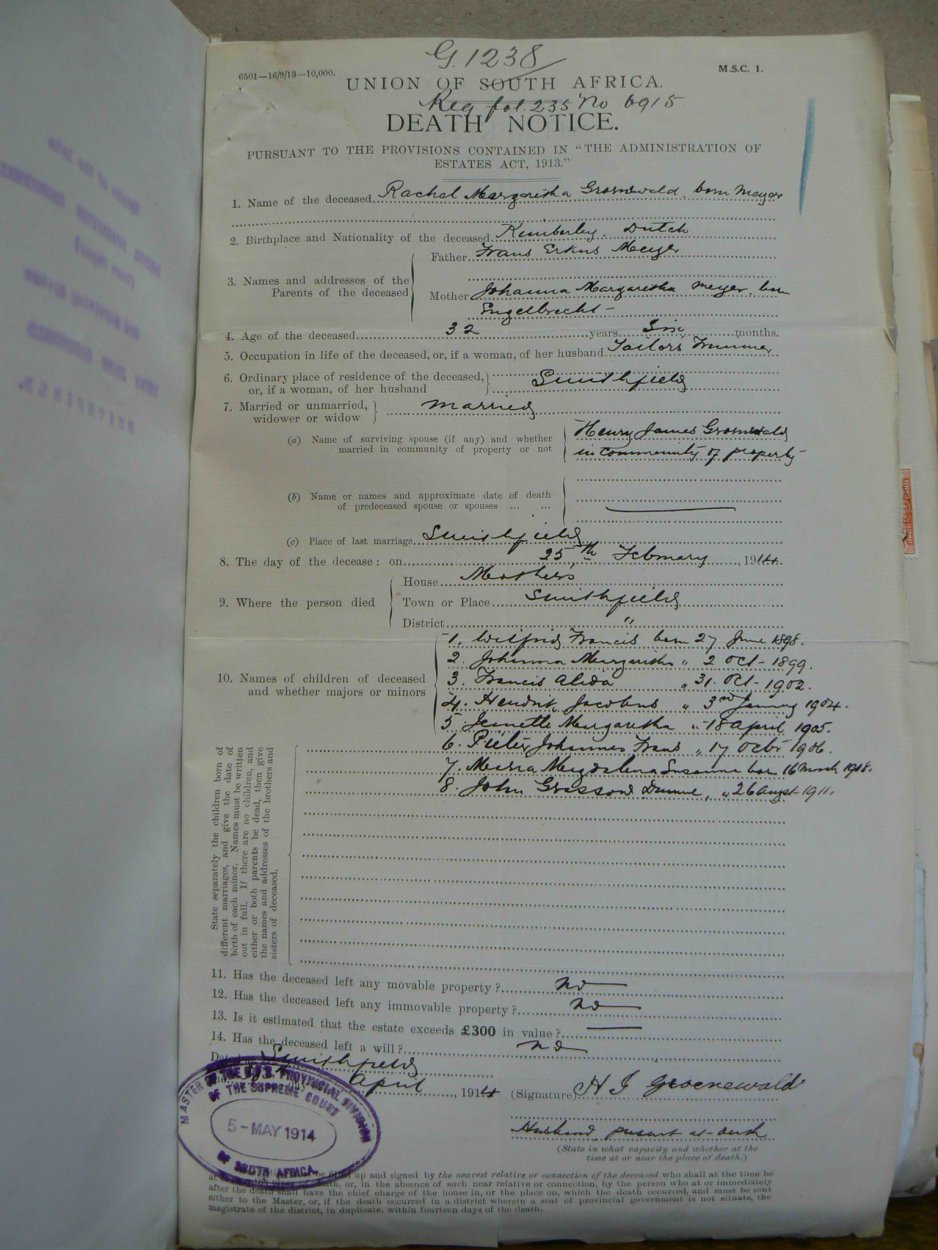 G 1238
6501—16/9/13—10,000.
M.S.C. 1.
UNION OF SOUTH AFRICA.
Reg fol. 235 No 6915
DEATH NOTICE.
PURSUANT TO THE PROVISIONS CONTAINED IN "THE ADMINISTRATION OF
ESTATES ACT, 1913."
1. Name of the deceased Rachel Margaretha Groenewald born Meyer
2. Birthplace and Nationality of the deceased Kimberley. Dutch
3. Names and addresses of the Parents of the deceased
Father Frans Erkus Meyer
Mother Johanna Margaretha Meyer, bn
Engelbrecht
4. Age of the deceased 32 years Six months.
5. Occupation in life of the deceased, or, if a woman, of her husband Tailors Trimmer
6. Ordinary place of residence of the deceased,
or, if a woman, of her husband Smithfield
7. Married or unmarried,
widower or widow married
(a) Name of surviving spouse (if any) and whether
married in community of property or not
Henry James Groenewald
in community of property
(b) Name or names and approximate date of death
of predeceased spouse or spouses ... ...
(c) Place of last marriage Smithfield
8. The day of the decease: on 25th February, 1914.
9. Where the person died
House Mothers
Town or Place Smithfield
District "
10. Names of children of deceased
and whether majors or minors
1. Wilfrid Francis born 27 June 1898.
2. Johanna Margaretha " 2 Oct - 1899.
3. Francis Alida " 31. Oct - 1902.
4. Hendrik Jacobus " 3rd January 1904.
5 Jeanette Margaretha " 18 April 1905.
6. Pieter Johannes Frans " 17 Octbr 1906.
7. Maria Magdalena Susanna bon 16 March 1908.
8. John Grosson , " 26 Augst 1911.
State separately the children born of
different marriages, and give the date of
birth of each minor. Names must be written
out in full. If there are no children, and
either or both parents be dead, then give
the names and addresses of the brothers and
sisters of deceased.
11. Has the deceased left any movable property? no
12. Has the deceased left any immovable property? no
13. Is it estimated that the estate exceeds £300 in value?
14. Has the deceased left a will? no
Dated Smithfield
April, 1914
(Signature) H J Groenewald
Husband present at death
(State in what capacity and whether at the
time at or near the place of death.)
MASTER OF THE O.F.S. PROVINCIAL DIVISION
OF THE SUPREME COURT
5-MAY 1914
OF SOUTH AFRICA
up and signed by the nearest relative or connection of the deceased who shall at the time be
or, in the absence of such near relative or connection, by the person who at or immediately
after the death shall have the chief charge of the house in, or the place on, which the death occurred, and must be sent
either to the Master, or, if the death occurred in a district wherein a seat of provincial government is not situate, the
magistrate of the district, in duplicate, within fourteen days of the death.